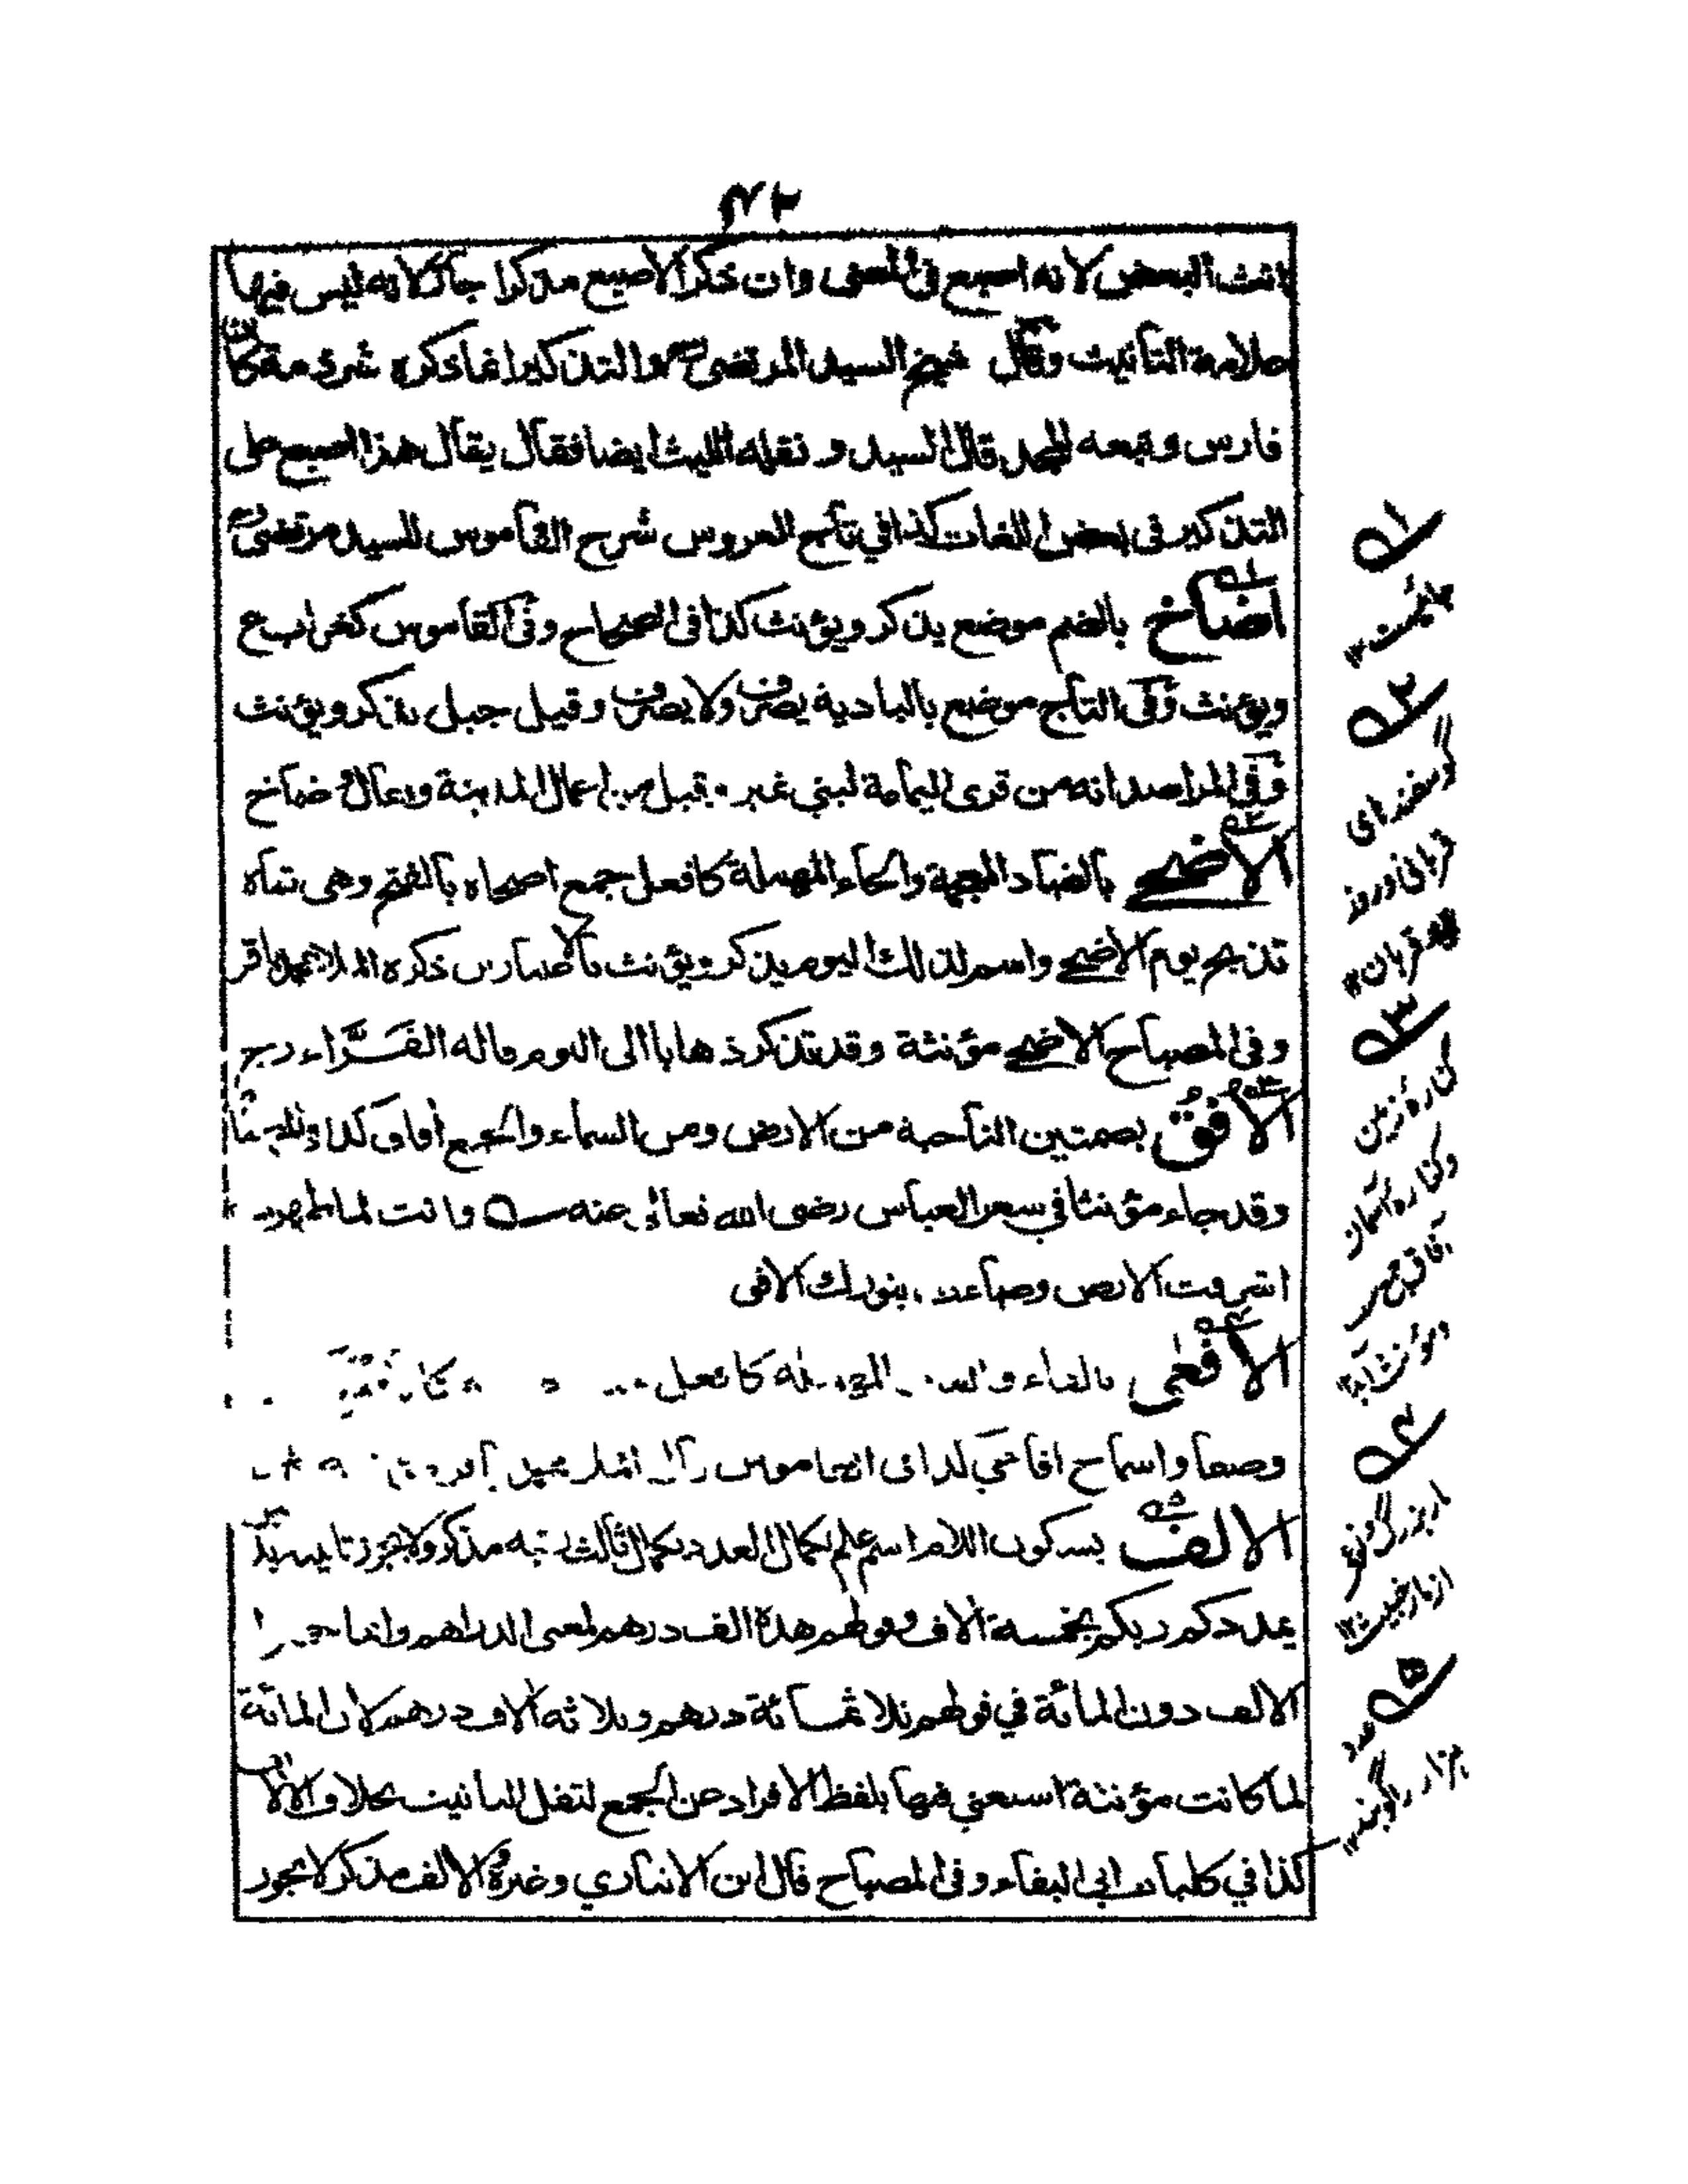 انث البعض لانه اصبع في المعنى وان ذكر الاصبع مذكرا جاز لانه ليس فيها
علامة التأنيث وقال شيخ السيد المرتضى والتذكير انما ذكره شرذمة كابن
فارس وتبعه المجد قال السيد ونقله الليث ايضا فقال يقال هذا اصبع على
التذكير في بعض اللغات كذا في تاج العروس شرح القاموس للسيد مرتضى
اضاخ بالضم موضع يذكر ويؤنث كذا في الصحاح وفي القاموس كغراب ع
ويؤنث وفي التاج موضع بالبادية يصرف ولا يصرف وقيل جبل يذكر ويؤنث
وفي المراصد انه من قرى اليمامة لبني نمير وقيل من اعمال المدينة ويقال وضاخ
الاضحى بالضاد المعجمة والحاء المهملة كافعل جمع اضحاه بالفتح وهي شاه
تذبح يوم الاضحى واسم لذلك اليوم يذكر ويؤنث بالاعتبارين ذكره الملا محمد باقر
وفي المصباح الاضحى مؤنثة وقد تذكر ذهابا الى اليوم قاله الفراء رح
الافق بضمتين الناحية من الارض ومن السماء والجمع آفاق كذا
وقد جاء مؤنثا في شعر العباس رضي الله تعالى عنه وانت لما ظهرت
اشرقت الارض وضاءت بنورك الافق
الافعى بالفاء والعين المهملة كافعل
الالف بسكون اللام اسم علم لكمال العدد بكمال ثالث رتبه مذكر ولا يجوز تانيثه
يمددكم ربكم بخمسة آلاف وقولهم هذه الف درهم لمعنى الدراهم وانما
الالف دون المائة في قولهم ثلاثمائة درهم وثلاثة آلاف درهم لان المائة
لما كانت مؤنثة استغني فيها بلفظ الافراد عن الجمع لثقل التانيث بخلاف الالف
كذا في كليات ابي البقاء وفي المصباح قال ابن الانباري وغيره الالف مذكر لا يجوز
گوسفندهای
قربانی و روز
قربان
کناره زمین
وکناره آسمان